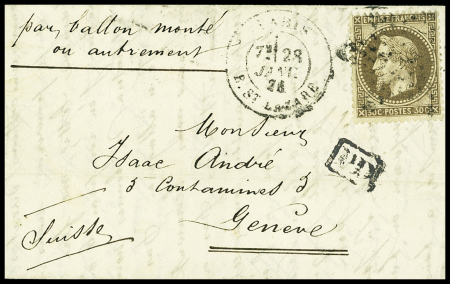 par ballon monté
ou autrement
PARIS
7E 28
JANV.
R. ST LAZARE
EMPIRE FRANÇAIS
30C POSTES 30C
Monsieur
Isaac André
5 Contamines 5
Genève
Suisse